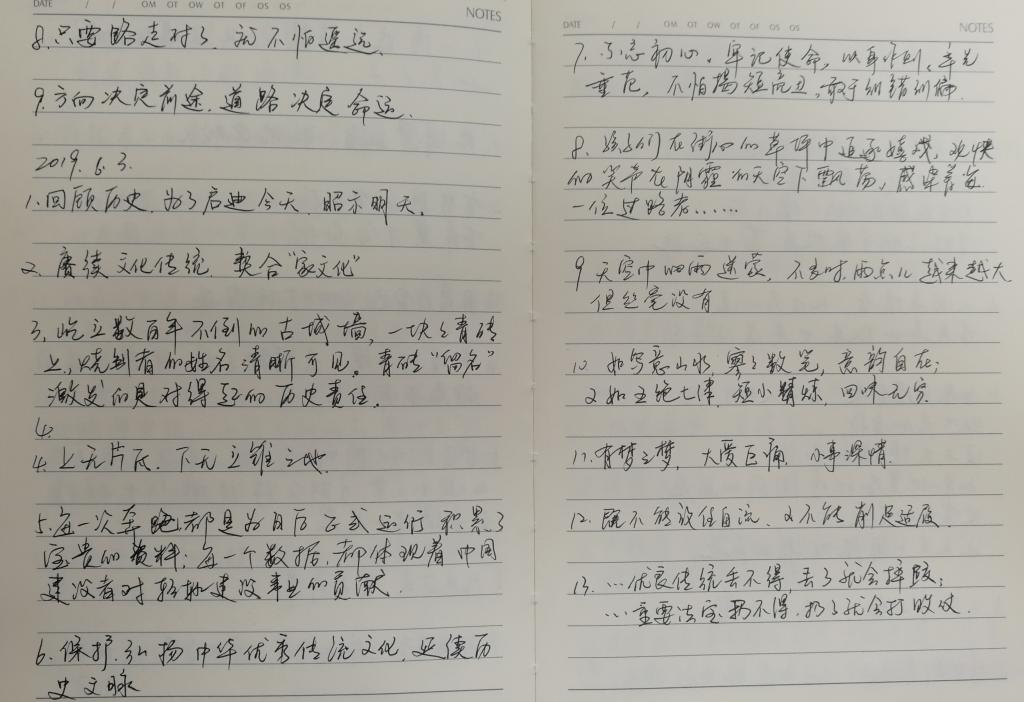 DATE / / OM OT OW OT OF OS OS NOTES
8.只要路走对了,就不怕遥远.
9.方向决定前途,道路决定命运.
2019.6.3.
1.回顾历史,为了启迪今天,昭示明天。
2.赓续文化传统,契合"家文化"
3.屹立数百年不倒的古城墙,一块块青砖
上,烧制者的姓名清晰可见。青砖"留名"
激发的是对得起的历史责任。
4.
4.上无片瓦,下无立锥之地
5.每一次奔跑,都是为日后正式运行积累了
宝贵的资料;每一个数据,都体现着中国
建设者对轻轨建设事业的贡献
6.保护、弘扬中华优秀传统文化,延续历
史文脉
DATE / / OM OT OW OT OF OS OS NOTES
7.不忘初心。牢记使命,以身作则,率先
垂范,不怕揭短亮丑,敢于纠错纠偏.
8.孩子们在街口的草坪中追逐嬉戏,欢快
的笑声在阴霾的天空下飘荡,感染着每
一位过路者……
9 天空中细雨迷蒙,不多时雨点儿越来越大
但丝毫没有
10 如写意山水,寥寥数笔,意韵自在;
又如五绝七律,短小精炼,回味无穷.
11.有梦之梦,大爱巨痛,小事深情.
12.既不能放任自流,又不能削足适履.
13.…优良传统丢不得,丢了就会摔跤;
…重要法宝扔不得,扔了就会打败仗.